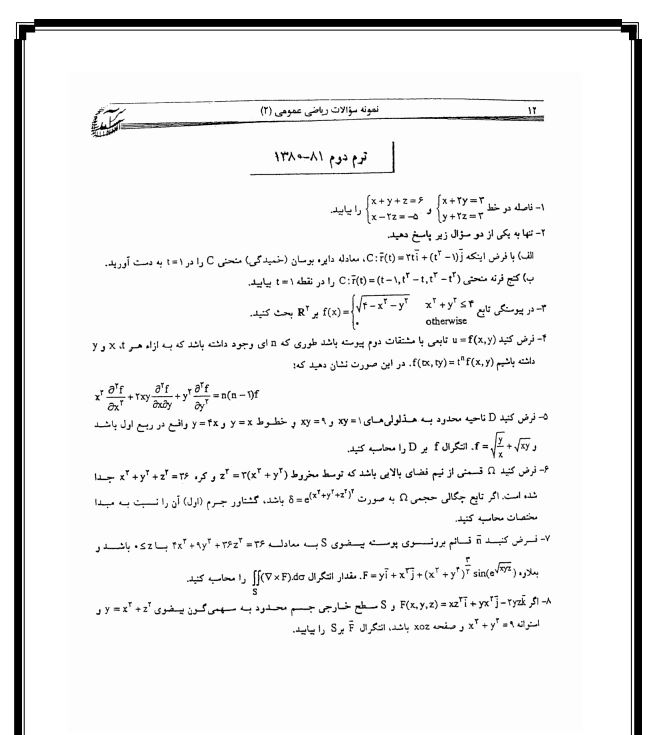 ۱۲ نمونه سؤالات ریاضی عمومی (۲)
ترم دوم ۸۱-۱۳۸۰
۱- فاصله دو خط { x + ۲y = ۳ , y + ۲z = ۳ و { x + y + z = ۶ , x - ۲z = -۵ را بیابید.
۲- تنها به یکی از دو سؤال زیر پاسخ دهید.
الف) با فرض اینکه C: r̄(t) = ۲t ī + (t² - ۱) j̄، معادله دایره بوسان (خمیدگی) منحنی C را در t = ۱ به دست آورید.
ب) کنج فرنه منحنی C: r̄(t) = (t - ۱, t² - t, t³ - t²) را در نقطه t = ۱ بیابید.
۳- در پیوستگی تابع f(x) = { √(۴ - x² - y²) x² + y² ≤ ۴ , ۰ otherwise بر R² بحث کنید.
۴- فرض کنید u = f(x, y) تابعی با مشتقات دوم پیوسته باشد طوری که n ای وجود داشته باشد که به ازاء هر x ،t و y
داشته باشیم f(tx, ty) = tⁿ f(x, y). در این صورت نشان دهید که:
x² ∂²f/∂x² + ۲xy ∂²f/∂x∂y + y² ∂²f/∂y² = n(n - ۱)f
۵- فرض کنید D ناحیه محدود به هذلولی‌های xy = ۱ و xy = ۹ و خطوط y = x و y = ۴x واقع در ربع اول باشد
و f = √(y/x) + √xy. انتگرال f بر D را محاسبه کنید.
۶- فرض کنید Ω قسمتی از نیم فضای بالایی باشد که توسط مخروط z² = ۳(x² + y²) و کره x² + y² + z² = ۳۶ جدا
شده است. اگر تابع چگالی حجمی Ω به صورت δ = e^(x²+y²+z²)² باشد، گشتاور جرم (اول) آن را نسبت به مبدا
مختصات محاسبه کنید.
۷- فرض کنید n̄ قائم برونسوی پوسته بیضوی S به معادله ۴x² + ۹y² + ۳۶z² = ۳۶ با ۰ ≤ z باشد و
بعلاوه F = y ī + x² j̄ + (x² + y⁴)^(۳/۲) sin(e^√xyz). مقدار انتگرال ∬_S (∇×F).dσ را محاسبه کنید.
۸- اگر F(x, y, z) = xz² ī + yx² j̄ - ۲yz k̄ و S سطح خارجی جسم محدود به سهمی‌گون بیضوی y = x² + z² و
استوانه x² + y² = ۹ و صفحه xoz باشد، انتگرال F̄ بر S را بیابید.